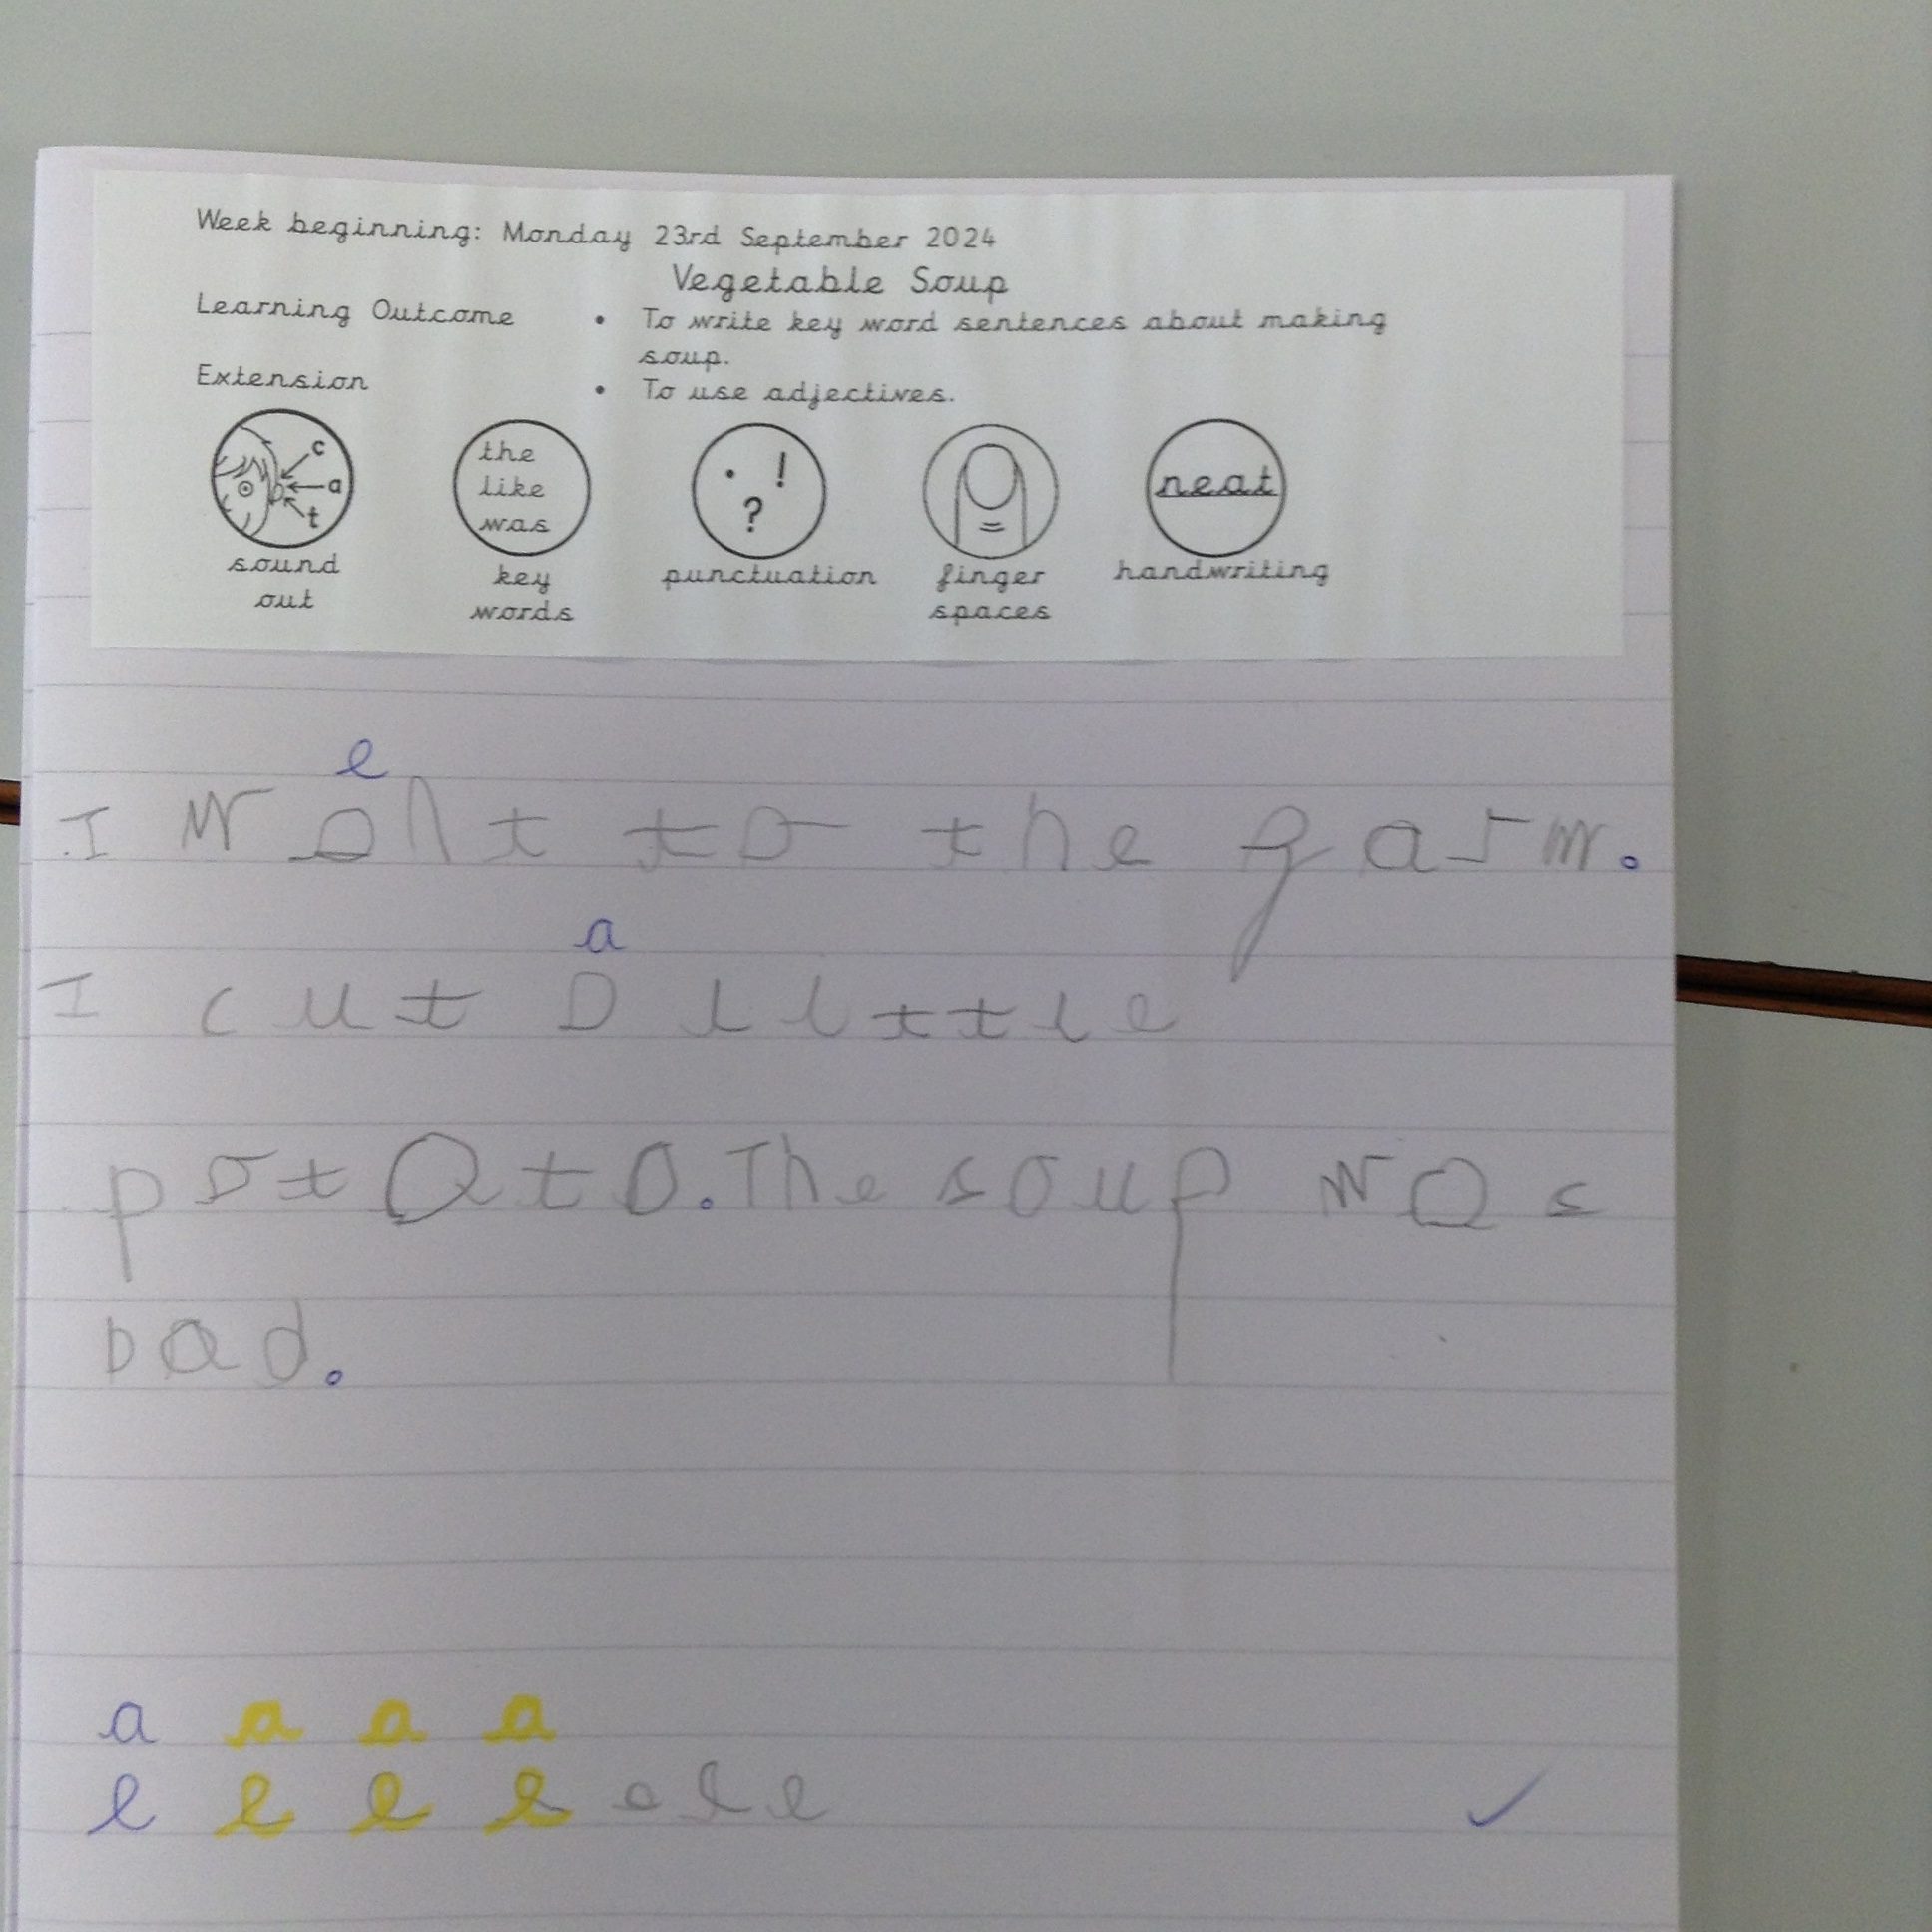 Week beginning: Monday 23rd September 2024
Vegetable Soup
Learning Outcome • To write key word sentences about making
soup.
Extension • To use adjectives.
c
a
t
the
like
was
. !
?
neat
sound
out
key
words
punctuation
finger
spaces
handwriting
e
I went to the farm.
a
I cut a little
potato. The soup was
bad.
a a a a
e e e e e e e